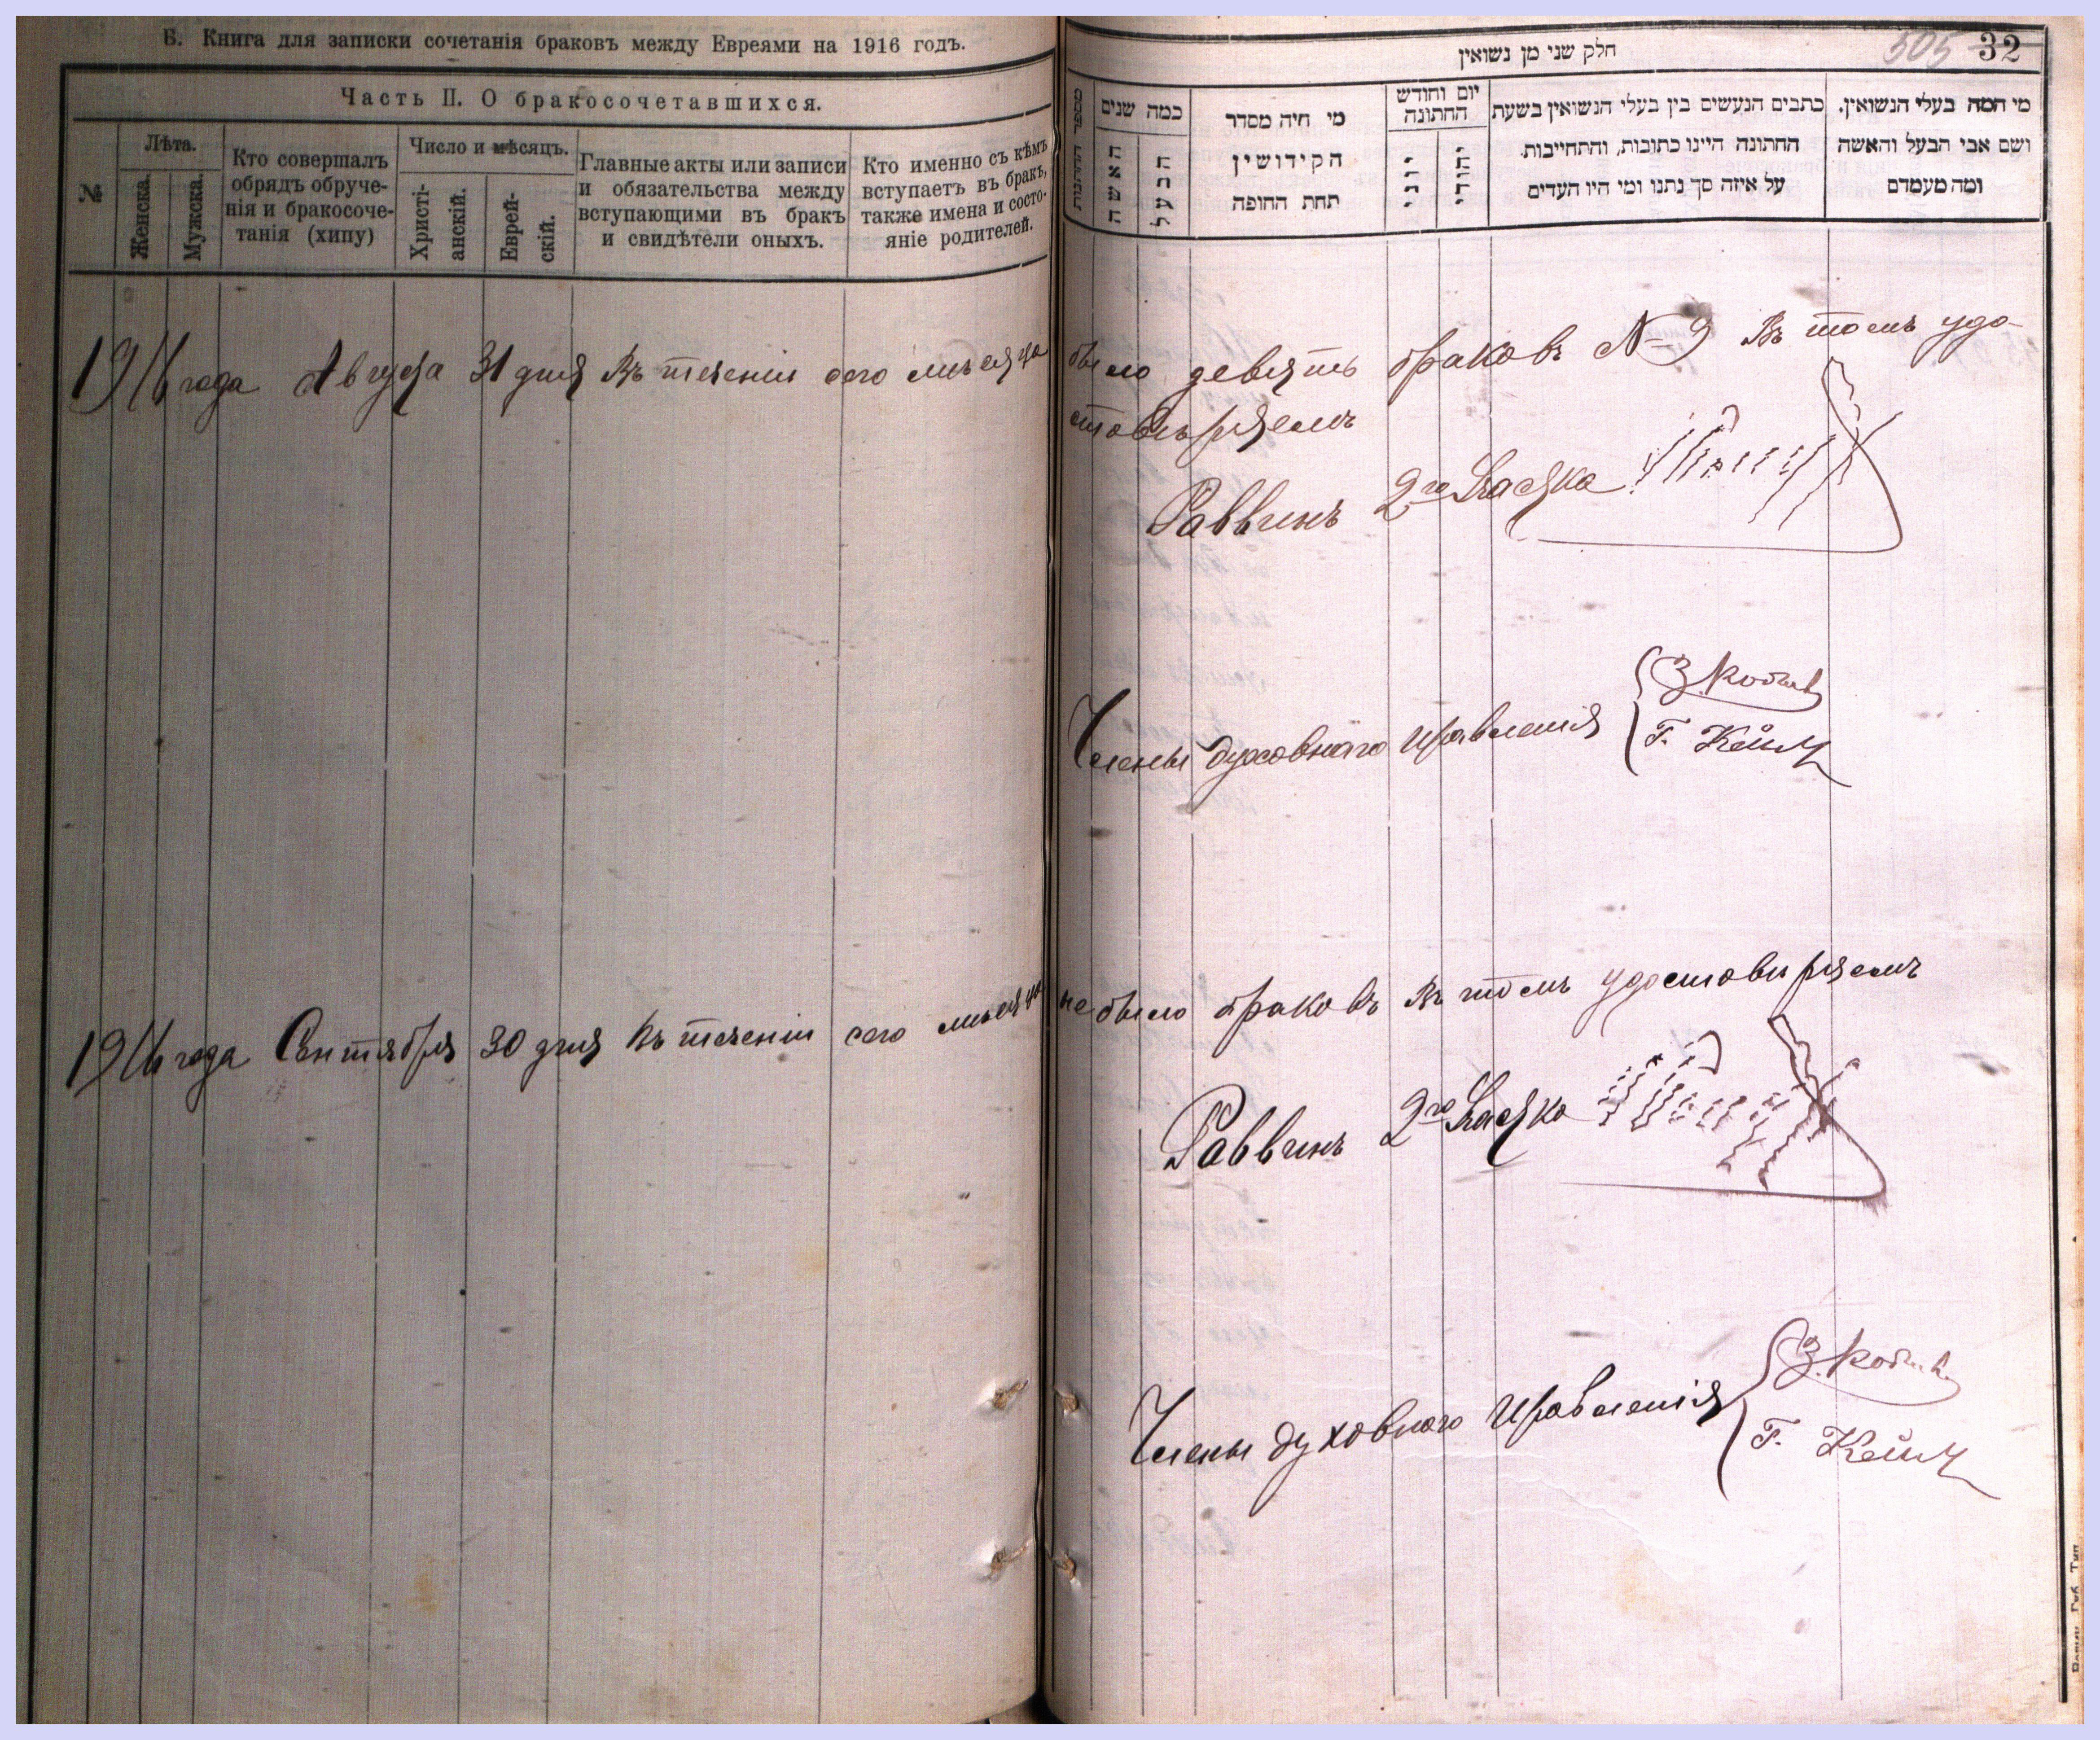 Б. Книга для записки сочетанія браковъ между Евреями на 1916 годъ.
Часть II. О бракосочетавшихся.
№
Лѣта.
Женска.
Мужска.
Кто совершалъ
обрядъ обруче-
нія и бракосоче-
танія (хипу)
Число и мѣсяцъ.
Христі-
анскій.
Еврей-
скій.
Главные акты или записи
и обязательства между
вступающими въ бракъ
и свидѣтели оныхъ.
Кто именно съ кѣмъ
вступаетъ въ бракъ,
также имена и состо-
яніе родителей.
505 32
חלק שני מן נשואין
מספר החתונות
כמה שנים
האשה
הבעל
מי היה מסדר
הקידושין
תחת החופה
יום וחודש
החתונה
יוני
יהודי
כתבים הנעשים בין בעלי הנשואין בשעת
החתונה היינו כתובות, והתחייבות
על איזה סך נתנו ומי היו העדים
מי המה בעלי הנשואין,
ושם אבי הבעל והאשה
ומה מעמדם
1916 года Августа 31 дня Въ теченіи сего мѣсяца было девять браковъ № 9 Въ томъ удо-
стовѣряемъ
Раввинъ 2го Участка
Члены духовнаго правленія
Г. Кейлъ
1916 года Сентября 30 дня Въ теченіи сего мѣсяца не было браковъ Въ томъ удостовѣряемъ
Раввинъ 2го Участка
Члены духовного правленія
Г. Кейлъ